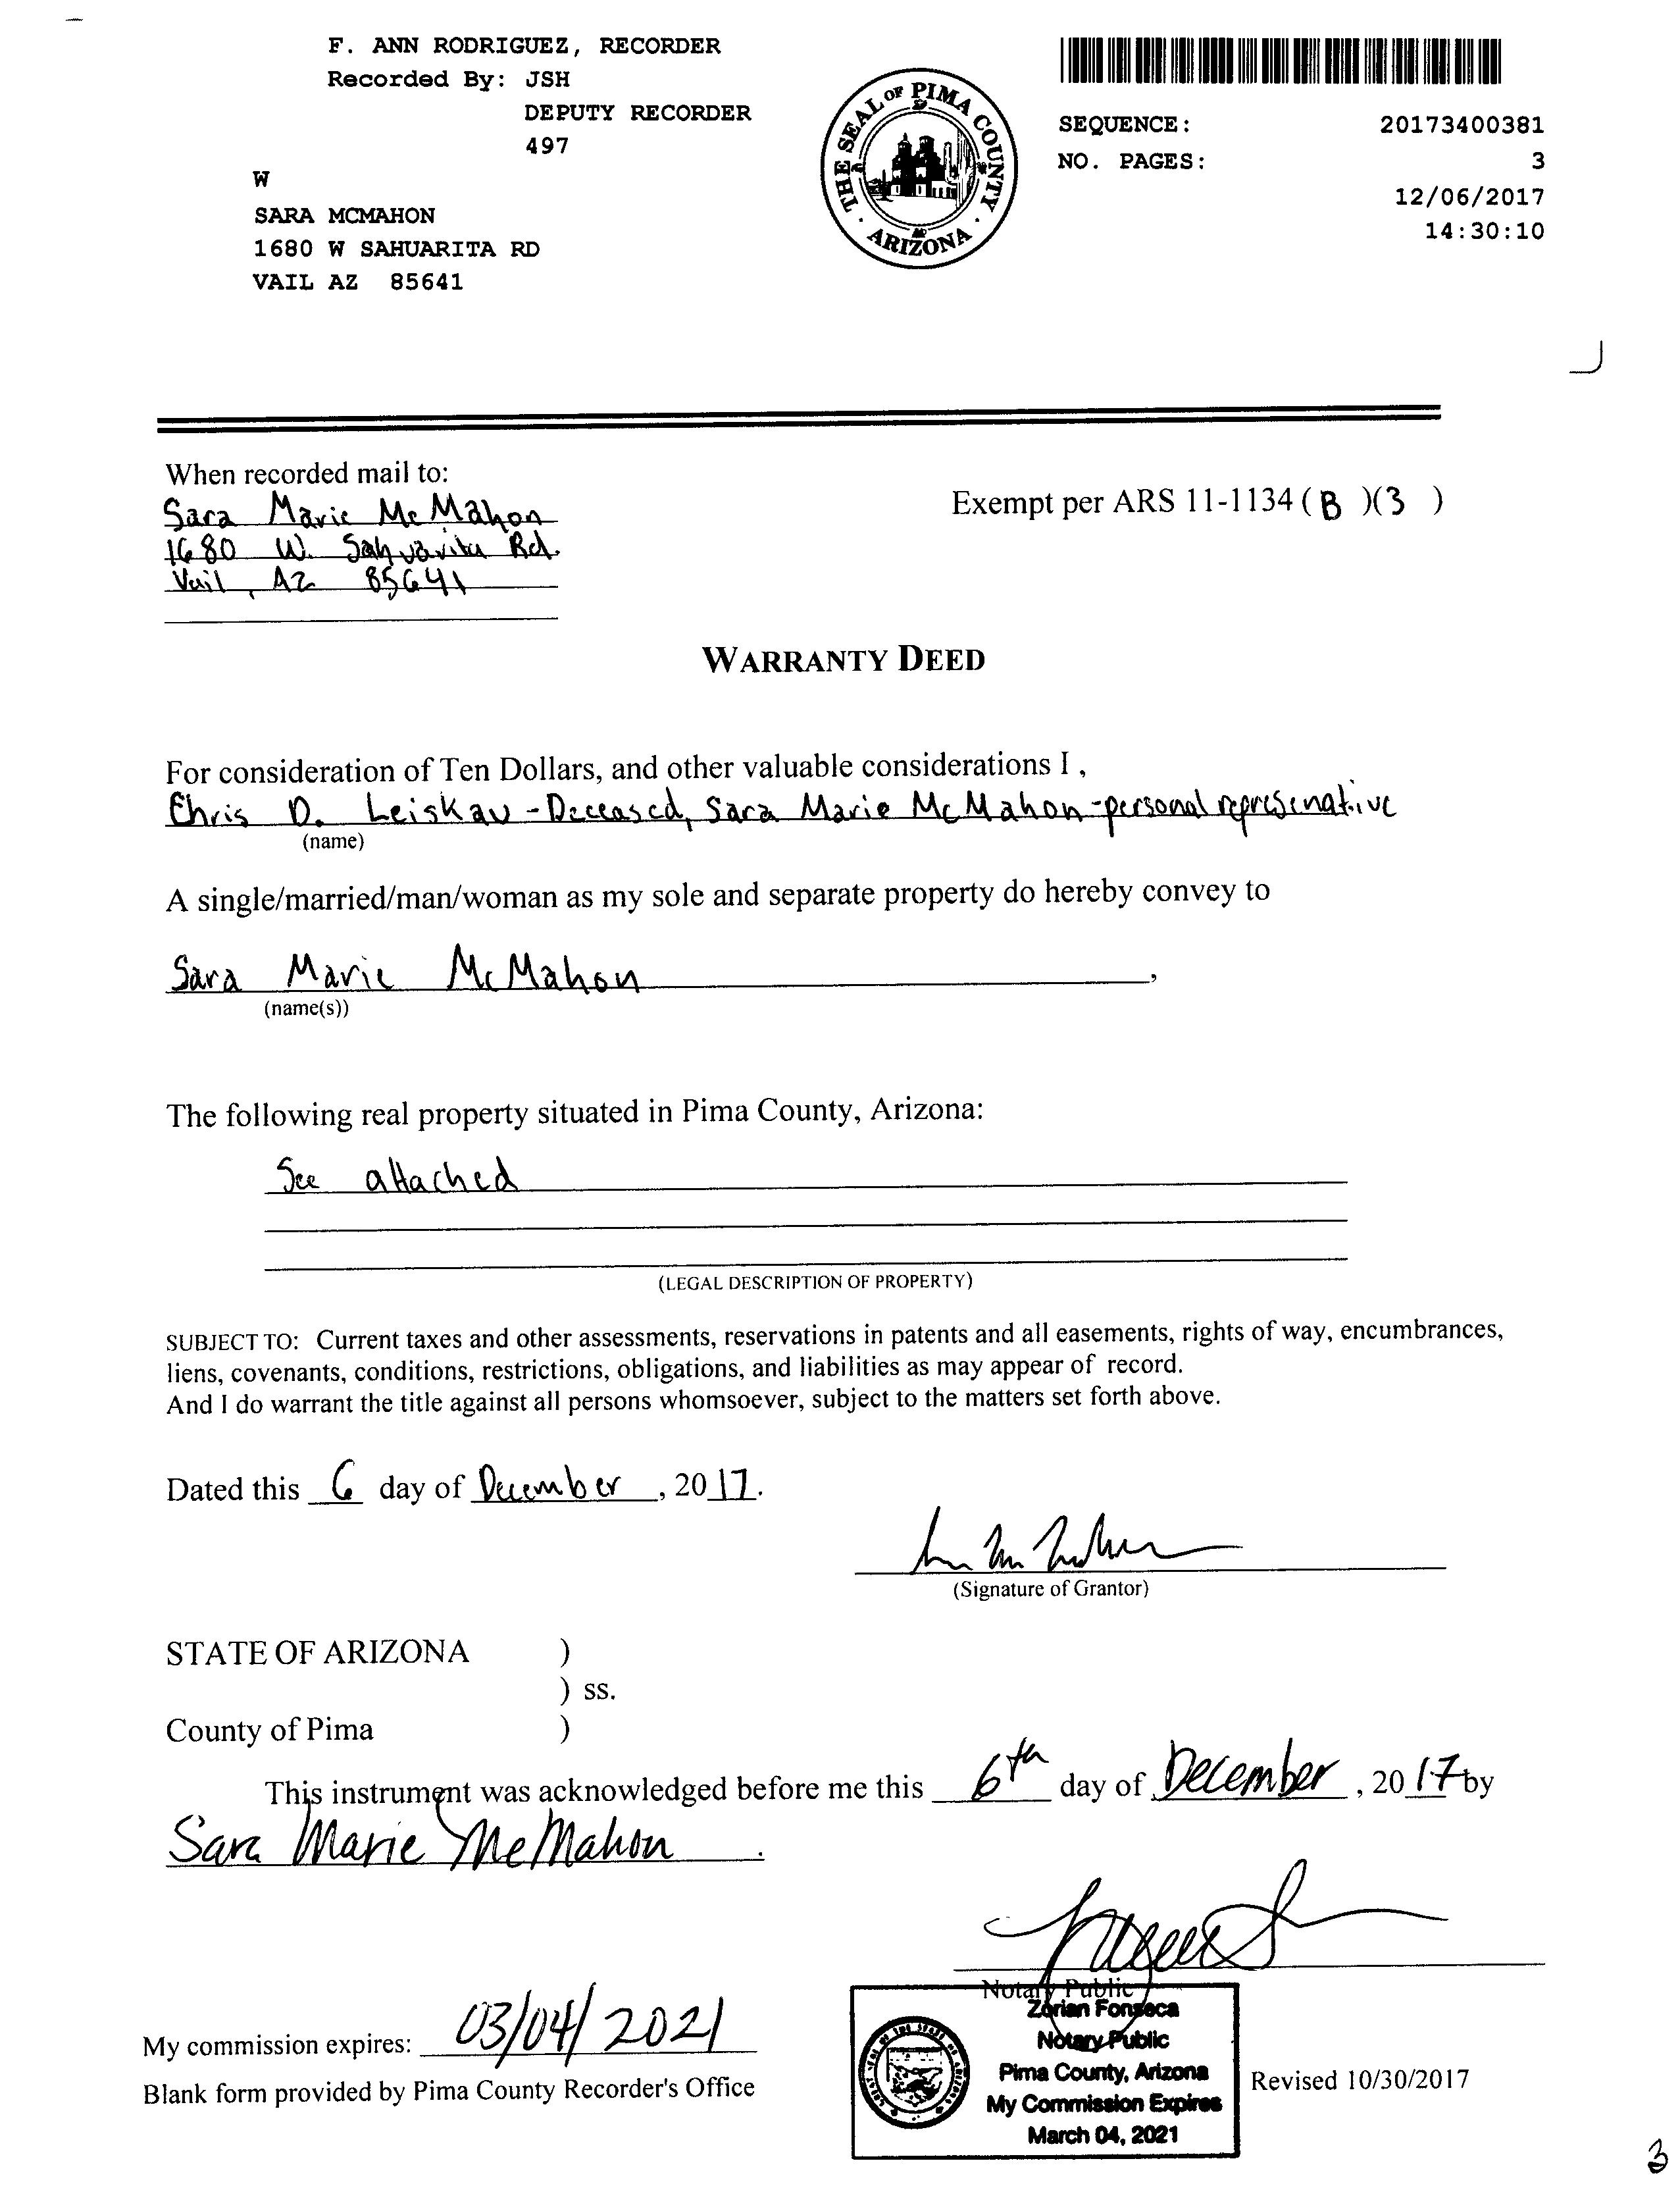 F. ANN RODRIGUEZ, RECORDER
Recorded By: JSH
DEPUTY RECORDER
497
W
SARA MCMAHON
1680 W SAHUARITA RD
VAIL AZ 85641
THE SEAL OF PIMA COUNTY
ARIZONA
SEQUENCE: 20173400381
NO. PAGES: 3
12/06/2017
14:30:10
When recorded mail to:
Sara Marie McMahon
1680 W. Sahuarita Rd.
Vail, AZ 85641
Exempt per ARS 11-1134 ( B )(3 )
WARRANTY DEED
For consideration of Ten Dollars, and other valuable considerations I ,
Chris D. Leiskau - Deceased, Sara Marie McMahon - personal represenative
(name)
A single/married/man/woman as my sole and separate property do hereby convey to
Sara Marie McMahon,
(name(s))
The following real property situated in Pima County, Arizona:
See attached
(LEGAL DESCRIPTION OF PROPERTY)
SUBJECT TO: Current taxes and other assessments, reservations in patents and all easements, rights of way, encumbrances,
liens, covenants, conditions, restrictions, obligations, and liabilities as may appear of record.
And I do warrant the title against all persons whomsoever, subject to the matters set forth above.
Dated this 6 day of December, 2017.
(Signature of Grantor)
STATE OF ARIZONA )
) ss.
County of Pima )
This instrument was acknowledged before me this 6th day of December, 2017 by
Sara Marie McMahon.
Notary Public
Zorian Fonseca
Notary Public
Pima County, Arizona
My Commission Expires
March 04, 2021
My commission expires: 03/04/2021
Blank form provided by Pima County Recorder's Office
Revised 10/30/2017
3